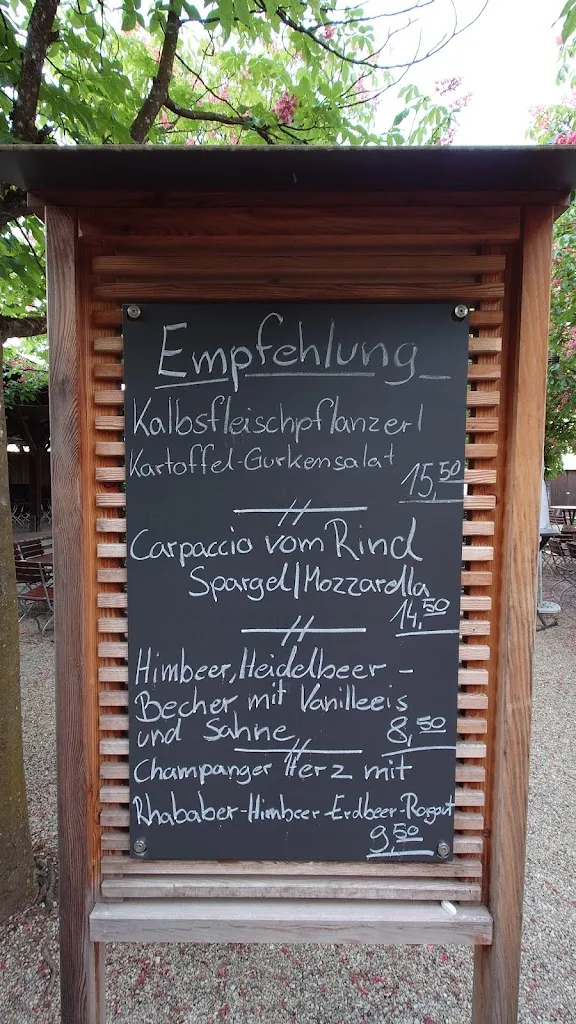 Empfehlung
Kalbsfleischpflanzerl
Kartoffel-Gurkensalat
15,50
Carpaccio vom Rind
Spargel/Mozzarella
14,50
Himbeer, Heidelbeer -
Becher mit Vanilleeis
und Sahne
8,50
Champanger Herz mit
Rhababer-Himbeer-Erdbeer-Ragout
9,50